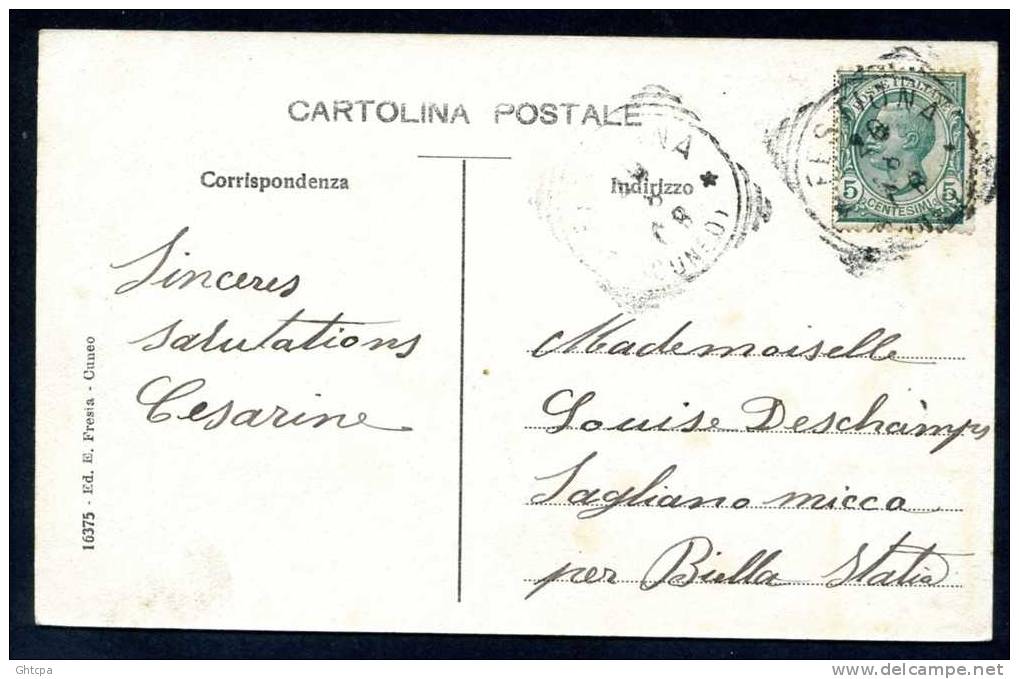 CARTOLINA POSTALE
Corrispondenza
Indirizzo
POSTE ITALIANE
5 5
CENTESIMI
FESTIONA
(CUNEO)
Sinceres
salutations
Cesarine
Mademoiselle
Louise Deschamps
Sagliano micca
per Biella Italia
16375 - Ed. E. Fresia - Cuneo
Ghtcpa
www.delcampe.net